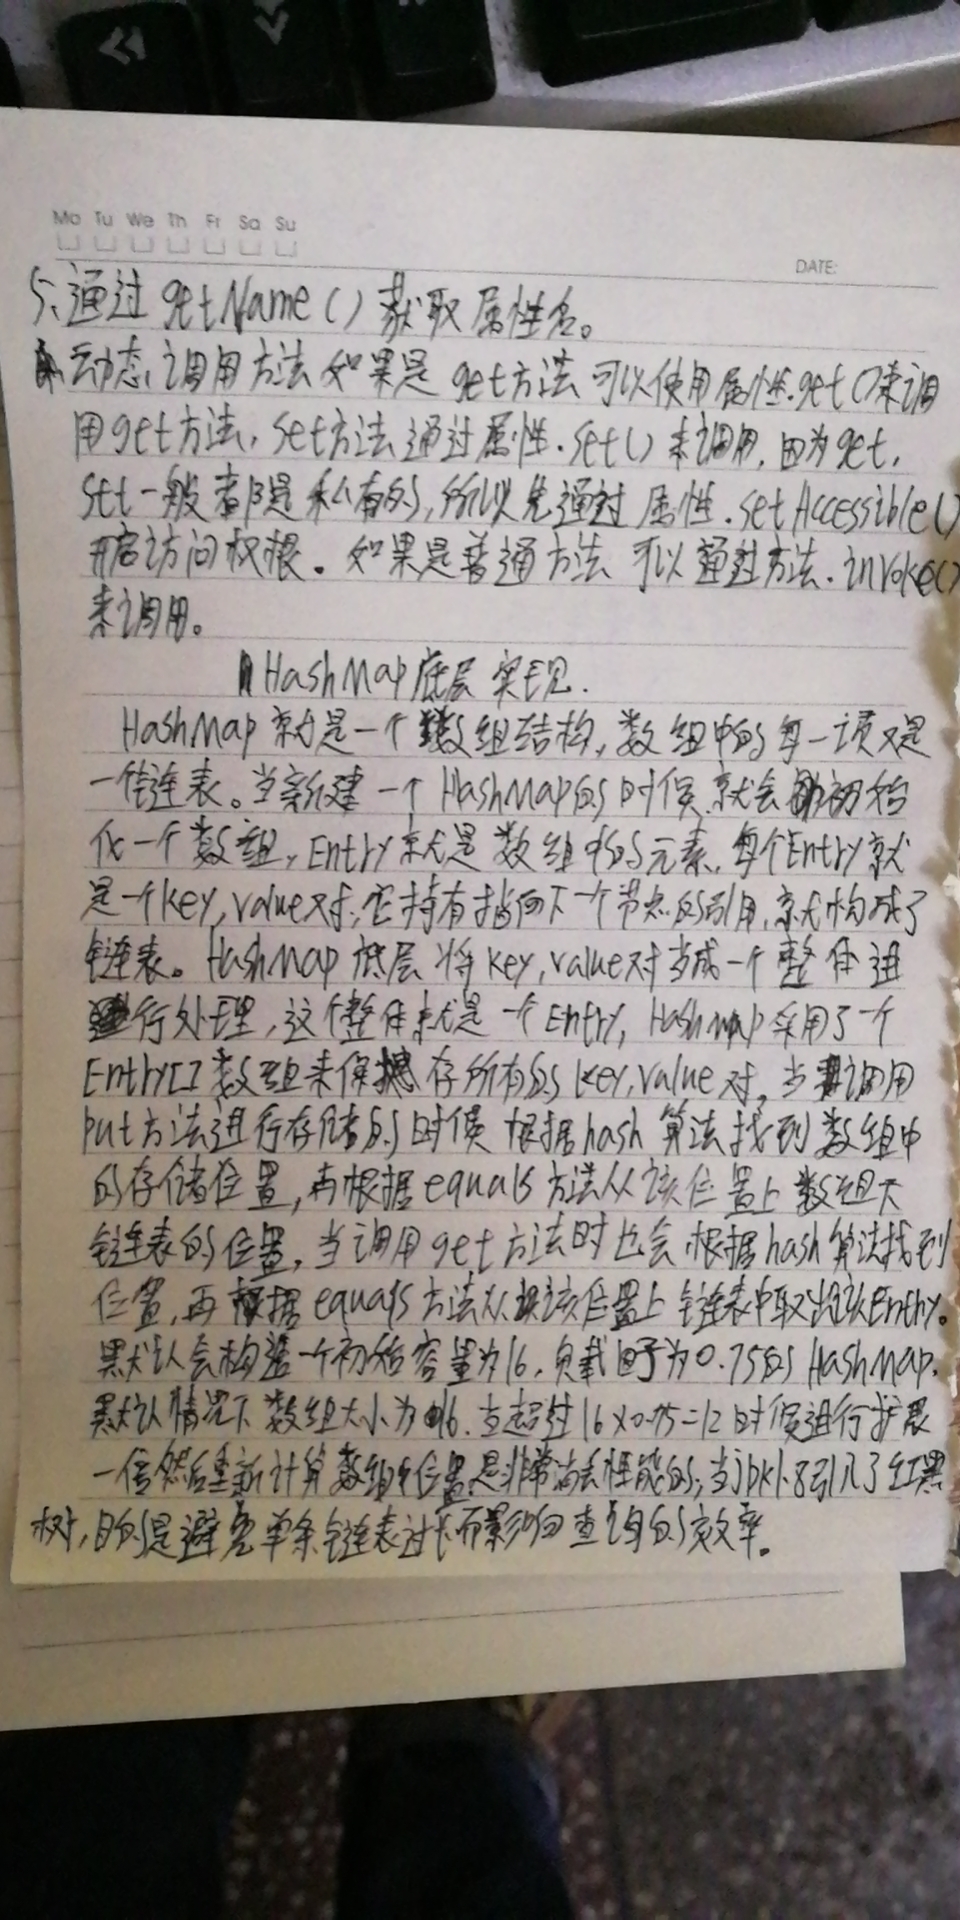 Mo Tu We Th Fr Sa Su
DATE:
5、通过 getName() 获取属性名。
动态调用方法 如果是 get方法 可以使用属性.get()来调
用get方法，set方法通过属性.set()来调用，因为get，
set一般都是私有的，所以先通过 属性.setAccessible()
开启访问权根。如果是普通方法 可以通过方法.invoke()
来调用。
HashMap底层实现.
HashMap 就是一个数组结构，数组中的每一项又是
一链表。当新建一个HashMap的时候就会初始
化一个数组，Entry就是数组中的元素，每个Entry就
是一个key,value对，它持有指向下一个节点的引用，就构成了
链表。HashMap底层将key,value对当成一个整体进
行处理，这个整体就是一个Entry，HashMap采用了一个
Entry[]数组来保存所有的key,value对，当调用
put方法进行存储的时候 根据hash算法找到数组中
的存储位置，再根据equals方法从该位置上数组大
链表的位置，当调用get方法时也会根据hash算法找到
位置，再根据equals方法从该位置上链表中取出该Entry。
默认会构造一个初始容量为16，负载因子为0.75的HashMap.
默认情况下数组大小为16.当超过16×0.75=12时候进行扩展
一倍然后重新计算数组位置是非常消耗性能的；当jbk1.8引入了红黑
树，目的是避免单条链表过长而影响查询的效率。